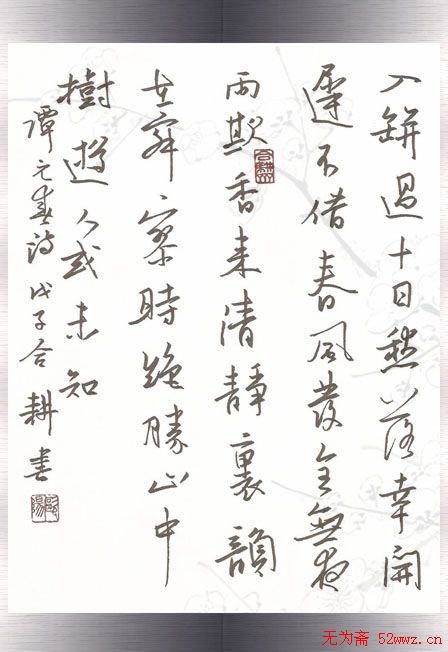 入缾過十日愁落幸開
遲不借春風發全無夜
雨欺香来清靜裏韻
在寂寥時絕勝山中
樹遊人或未知
譚元春诗戊子合耕書
无为斋 52wwz.cn